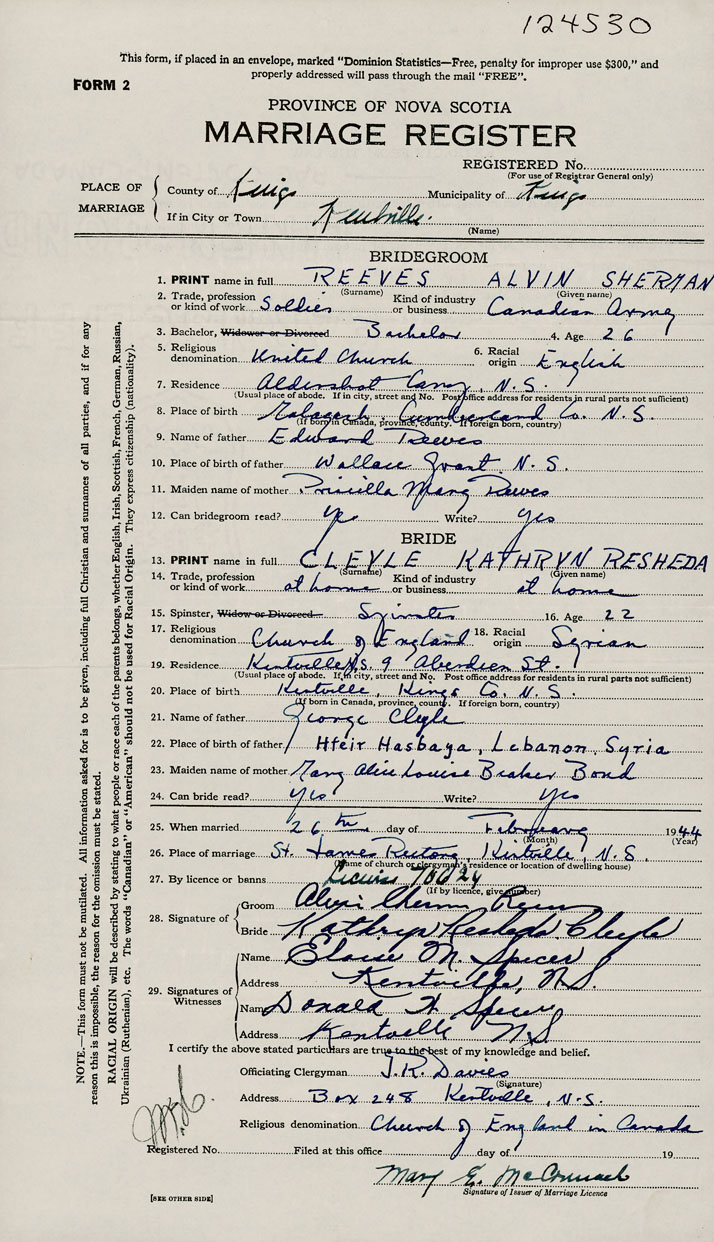 124530
This form, if placed in an envelope, marked "Dominion Statistics—Free, penalty for improper use $300," and
properly addressed will pass through the mail "FREE".
FORM 2
PROVINCE OF NOVA SCOTIA
MARRIAGE REGISTER
REGISTERED No.
(For use of Registrar General only)
PLACE OF MARRIAGE
County of Kings Municipality of Kings
If in City or Town Kentville.
(Name)
BRIDEGROOM
1. PRINT name in full REEVES ALVIN SHERMAN
(Surname) (Given name)
2. Trade, profession or kind of work Soldier Kind of industry or business Canadian Army
3. Bachelor, Widower or Divorced Bachelor 4. Age 26
5. Religious denomination United Church 6. Racial origin English
7. Residence Aldershot Camp, N.S.
(Usual place of abode. If in city, street and No. Post office address for residents in rural parts not sufficient)
8. Place of birth Malagash, Cumberland Co. N.S.
(If born in Canada, province, county. If foreign born, country)
9. Name of father Edward Reeves
10. Place of birth of father Wallace Grant N.S.
11. Maiden name of mother Priscilla Mary Reeves
12. Can bridegroom read? yes Write? yes
BRIDE
13. PRINT name in full CLEYLE KATHRYN RESHEDA
(Surname) (Given name)
14. Trade, profession or kind of work at home Kind of industry or business at home
15. Spinster, Widow or Divorced Spinster 16. Age 22
17. Religious denomination Church of England 18. Racial origin Syrian
19. Residence Kentville N.S. 9 Aberdeen St.
(Usual place of abode. If in city, street and No. Post office address for residents in rural parts not sufficient)
20. Place of birth Kentville, Kings Co. N.S.
(If born in Canada, province, county. If foreign born, country)
21. Name of father George Cleyle
22. Place of birth of father Hfeir Hasbaya, Lebanon, Syria
23. Maiden name of mother Mary Alice Louise Beaker Bond
24. Can bride read? Yes Write? Yes
25. When married 26th day of February 1944
(Month) (Year)
26. Place of marriage St. James Rectory, Kentville, N.S.
(Name of church or clergyman's residence or location of dwelling house)
27. By licence or banns Licence
(If by licence, give number)
28. Signature of
Groom Alvin Sherman Reeves
Bride Kathryn Resheda Cleyle
29. Signatures of Witnesses
Name Eloise M. Spicer
Address Kentville, N.S.
Name Donald H Spicer
Address Kentville N.S
I certify the above stated particulars are true to the best of my knowledge and belief.
Officiating Clergyman J.R. Davies
(Signature)
Address Box 248 Kentville, N.S.
Religious denomination Church of England in Canada
Registered No. Filed at this office day of 19
Mary E. McCormack
Signature of Issuer of Marriage Licence
[SEE OTHER SIDE]
NOTE.—This form must not be mutilated. All information asked for is to be given, including full Christian and surnames of all parties, and if for any
reason this is impossible, the reason for the omission must be stated.
RACIAL ORIGIN will be described by stating to what people or race each of the parents belongs, whether English, Irish, Scottish, French, German, Russian,
Ukrainian (Ruthenian), etc. The words "Canadian" or "American" should not be used for Racial Origin. They express citizenship (nationality).